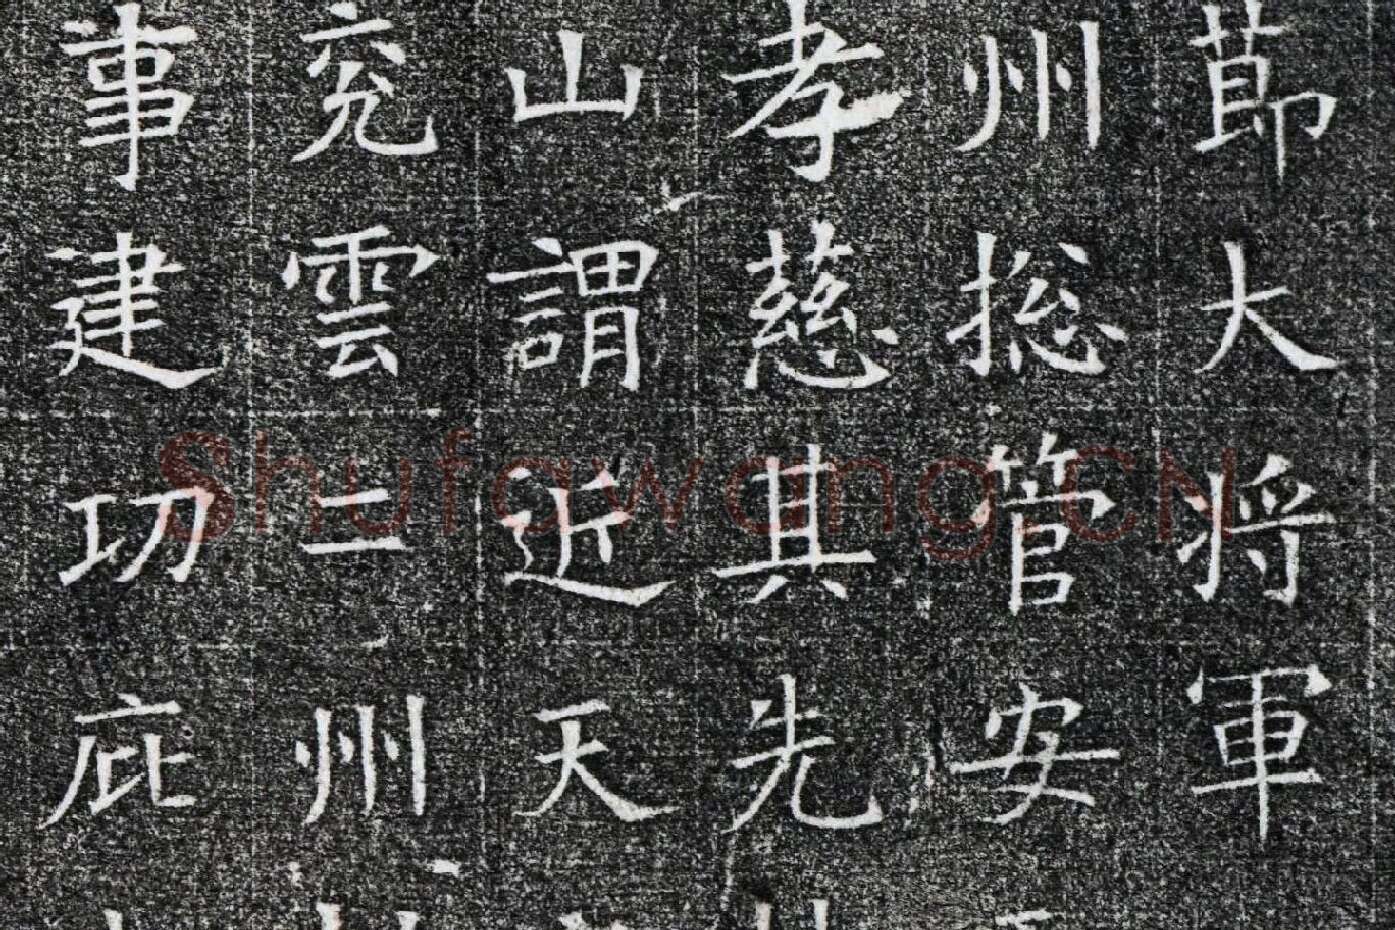 莭大将軍
州捴管安
孝慈其先
山謂近天
兖雲二州
事建功庇
Shufawang.CN